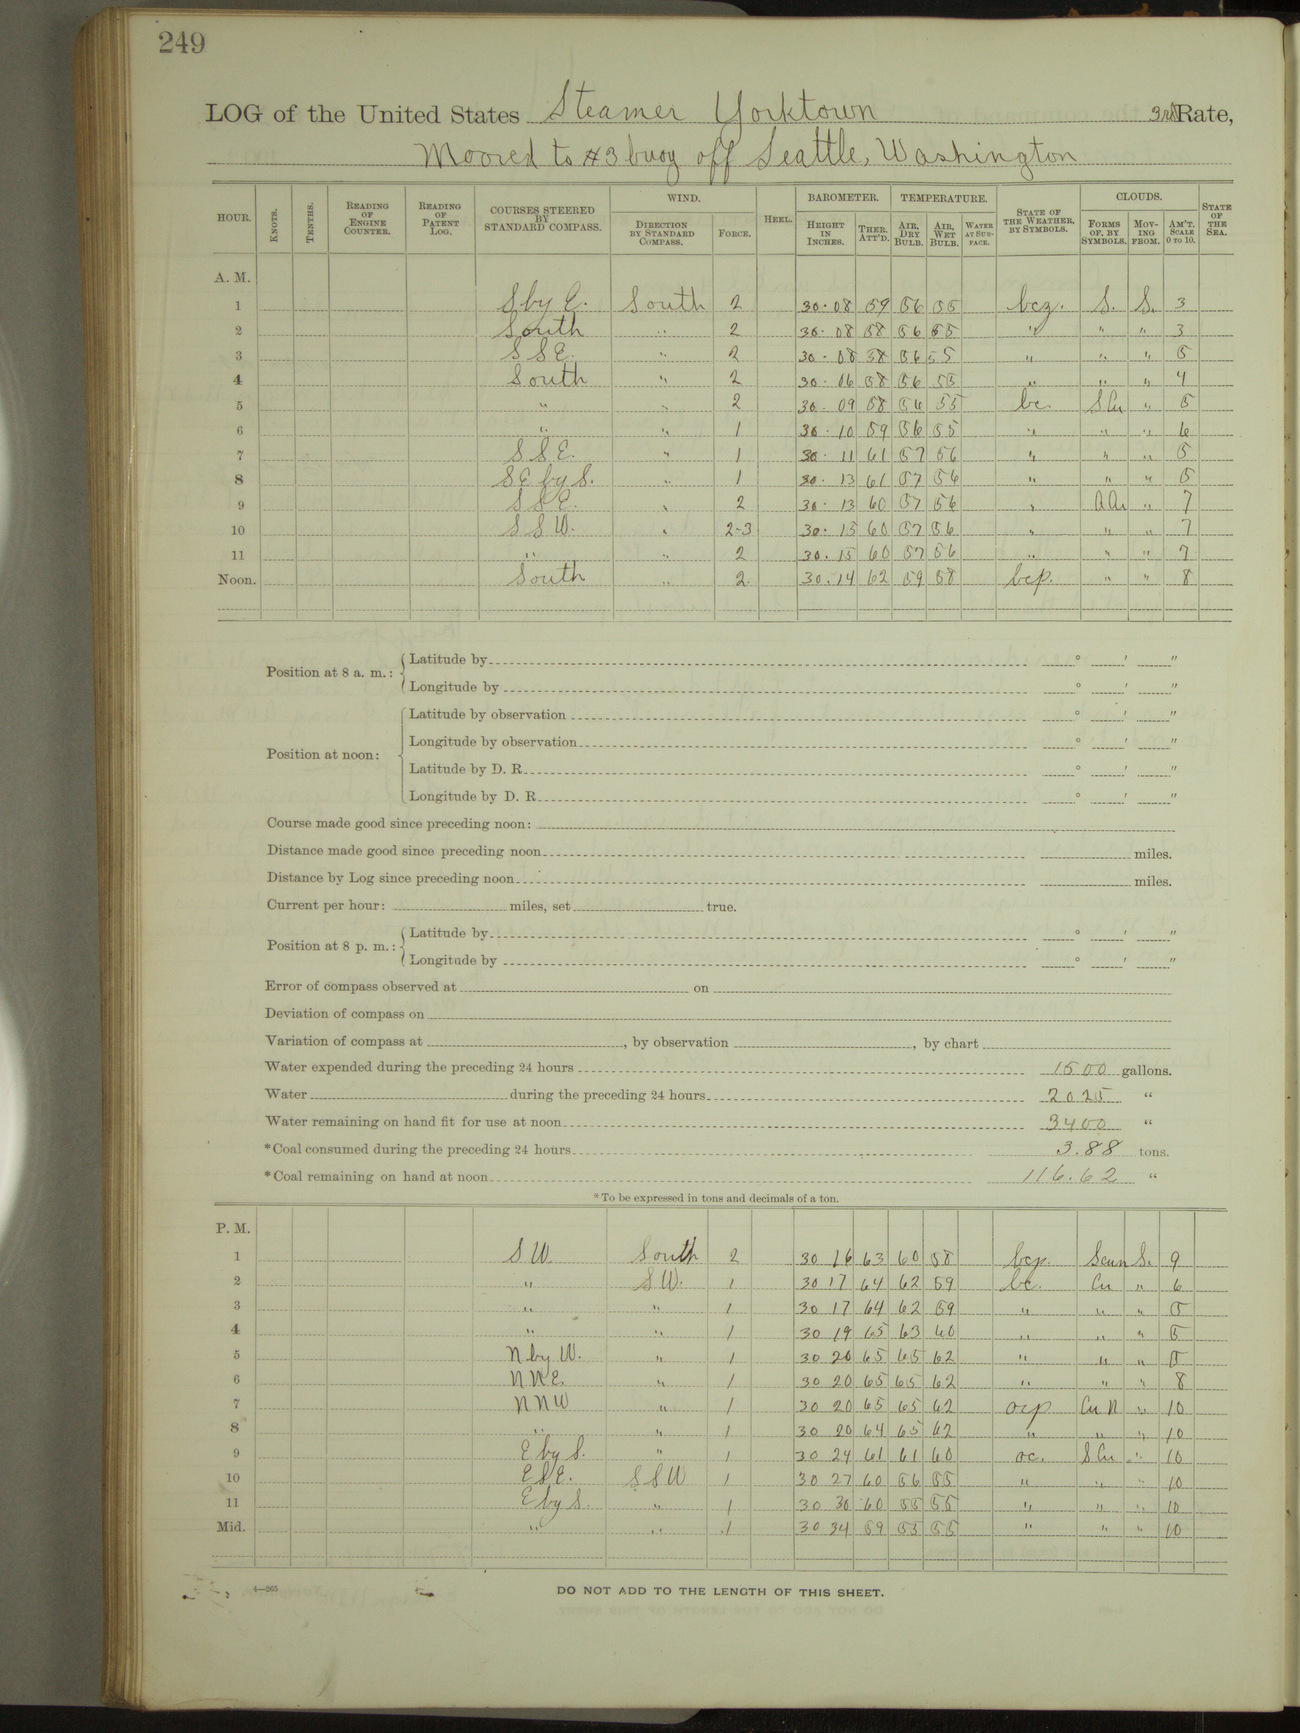 249
LOG of the United States Steamer Yorktown 3rd Rate,
Moored to #3 buoy off Seattle, Washington
HOUR. KNOTS. TENTHS. READING OF ENGINE COUNTER. READING OF PATENT LOG. COURSES STEERED BY STANDARD COMPASS. WIND. DIRECTION BY STANDARD COMPASS. FORCE. HEEL. BAROMETER. HEIGHT IN INCHES. THER. ATT'D. TEMPERATURE. AIR, DRY BULB. AIR, WET BULB. WATER AT SURFACE. STATE OF THE WEATHER, BY SYMBOLS. CLOUDS. FORMS OF, BY SYMBOLS. MOVING FROM. AM'T. SCALE 0 TO 10. STATE OF THE SEA.
A. M.
1 S by E. South 2 30.08 59 56 55 bcz. S. S. 3
2 South " 2 30.08 58 56 55 " " " 3
3 S S E. " 2 30.08 58 56 55 " " " 5
4 South " 2 30.06 58 56 55 " " " 4
5 " " 2 30.09 58 56 55 bc. S Cu " 5
6 " " 1 30.10 59 56 55 " " " 6
7 S S E. " 1 30.11 61 57 56 " " " 5
8 SE by S. " 1 30.13 61 57 56 " " " 5
9 S S E. " 2 30.13 60 57 56 " " 7
10 S S W. " 2-3 30.15 60 57 56 " " " 7
11 " " 2 30.15 60 57 56 " " " 7
Noon. South " 2 30.14 62 59 58 bcp. " " 8
Position at 8 a. m.: Latitude by ° ′ ″
Longitude by ° ′ ″
Position at noon: Latitude by observation ° ′ ″
Longitude by observation ° ′ ″
Latitude by D. R. ° ′ ″
Longitude by D. R. ° ′ ″
Course made good since preceding noon:
Distance made good since preceding noon miles.
Distance by Log since preceding noon miles.
Current per hour: miles, set true.
Position at 8 p. m.: Latitude by ° ′ ″
Longitude by ° ′ ″
Error of compass observed at on
Deviation of compass on
Variation of compass at , by observation , by chart
Water expended during the preceding 24 hours 1500 gallons.
Water during the preceding 24 hours 2025 "
Water remaining on hand fit for use at noon 3400 "
*Coal consumed during the preceding 24 hours 3.88 tons.
*Coal remaining on hand at noon 116.62 "
*To be expressed in tons and decimals of a ton.
P. M.
1 SW. South 2 30 16 63 60 58 bcp. S. 9
2 " S W. 1 30 17 64 62 59 bc. Cu " 6
3 " " 1 30 17 64 62 59 " " " 5
4 " " 1 30 19 65 63 60 " " " 5
5 N by W. " 1 30 20 65 65 62 " " " 5
6 N N E. " 1 30 20 65 65 62 " " " 8
7 N N W " 1 30 20 65 65 62 ocp Cu N " 10
8 " " 1 30 20 64 65 62 " " " 10
9 E by S. " 1 30 24 61 61 60 oc. S Cu " 10
10 E S E. S S W 1 30 27 60 56 55 " " " 10
11 E by S. " 1 30 30 60 55 55 " " " 10
Mid. " " 1 30 34 59 55 55 " " " 10
4—265
DO NOT ADD TO THE LENGTH OF THIS SHEET.